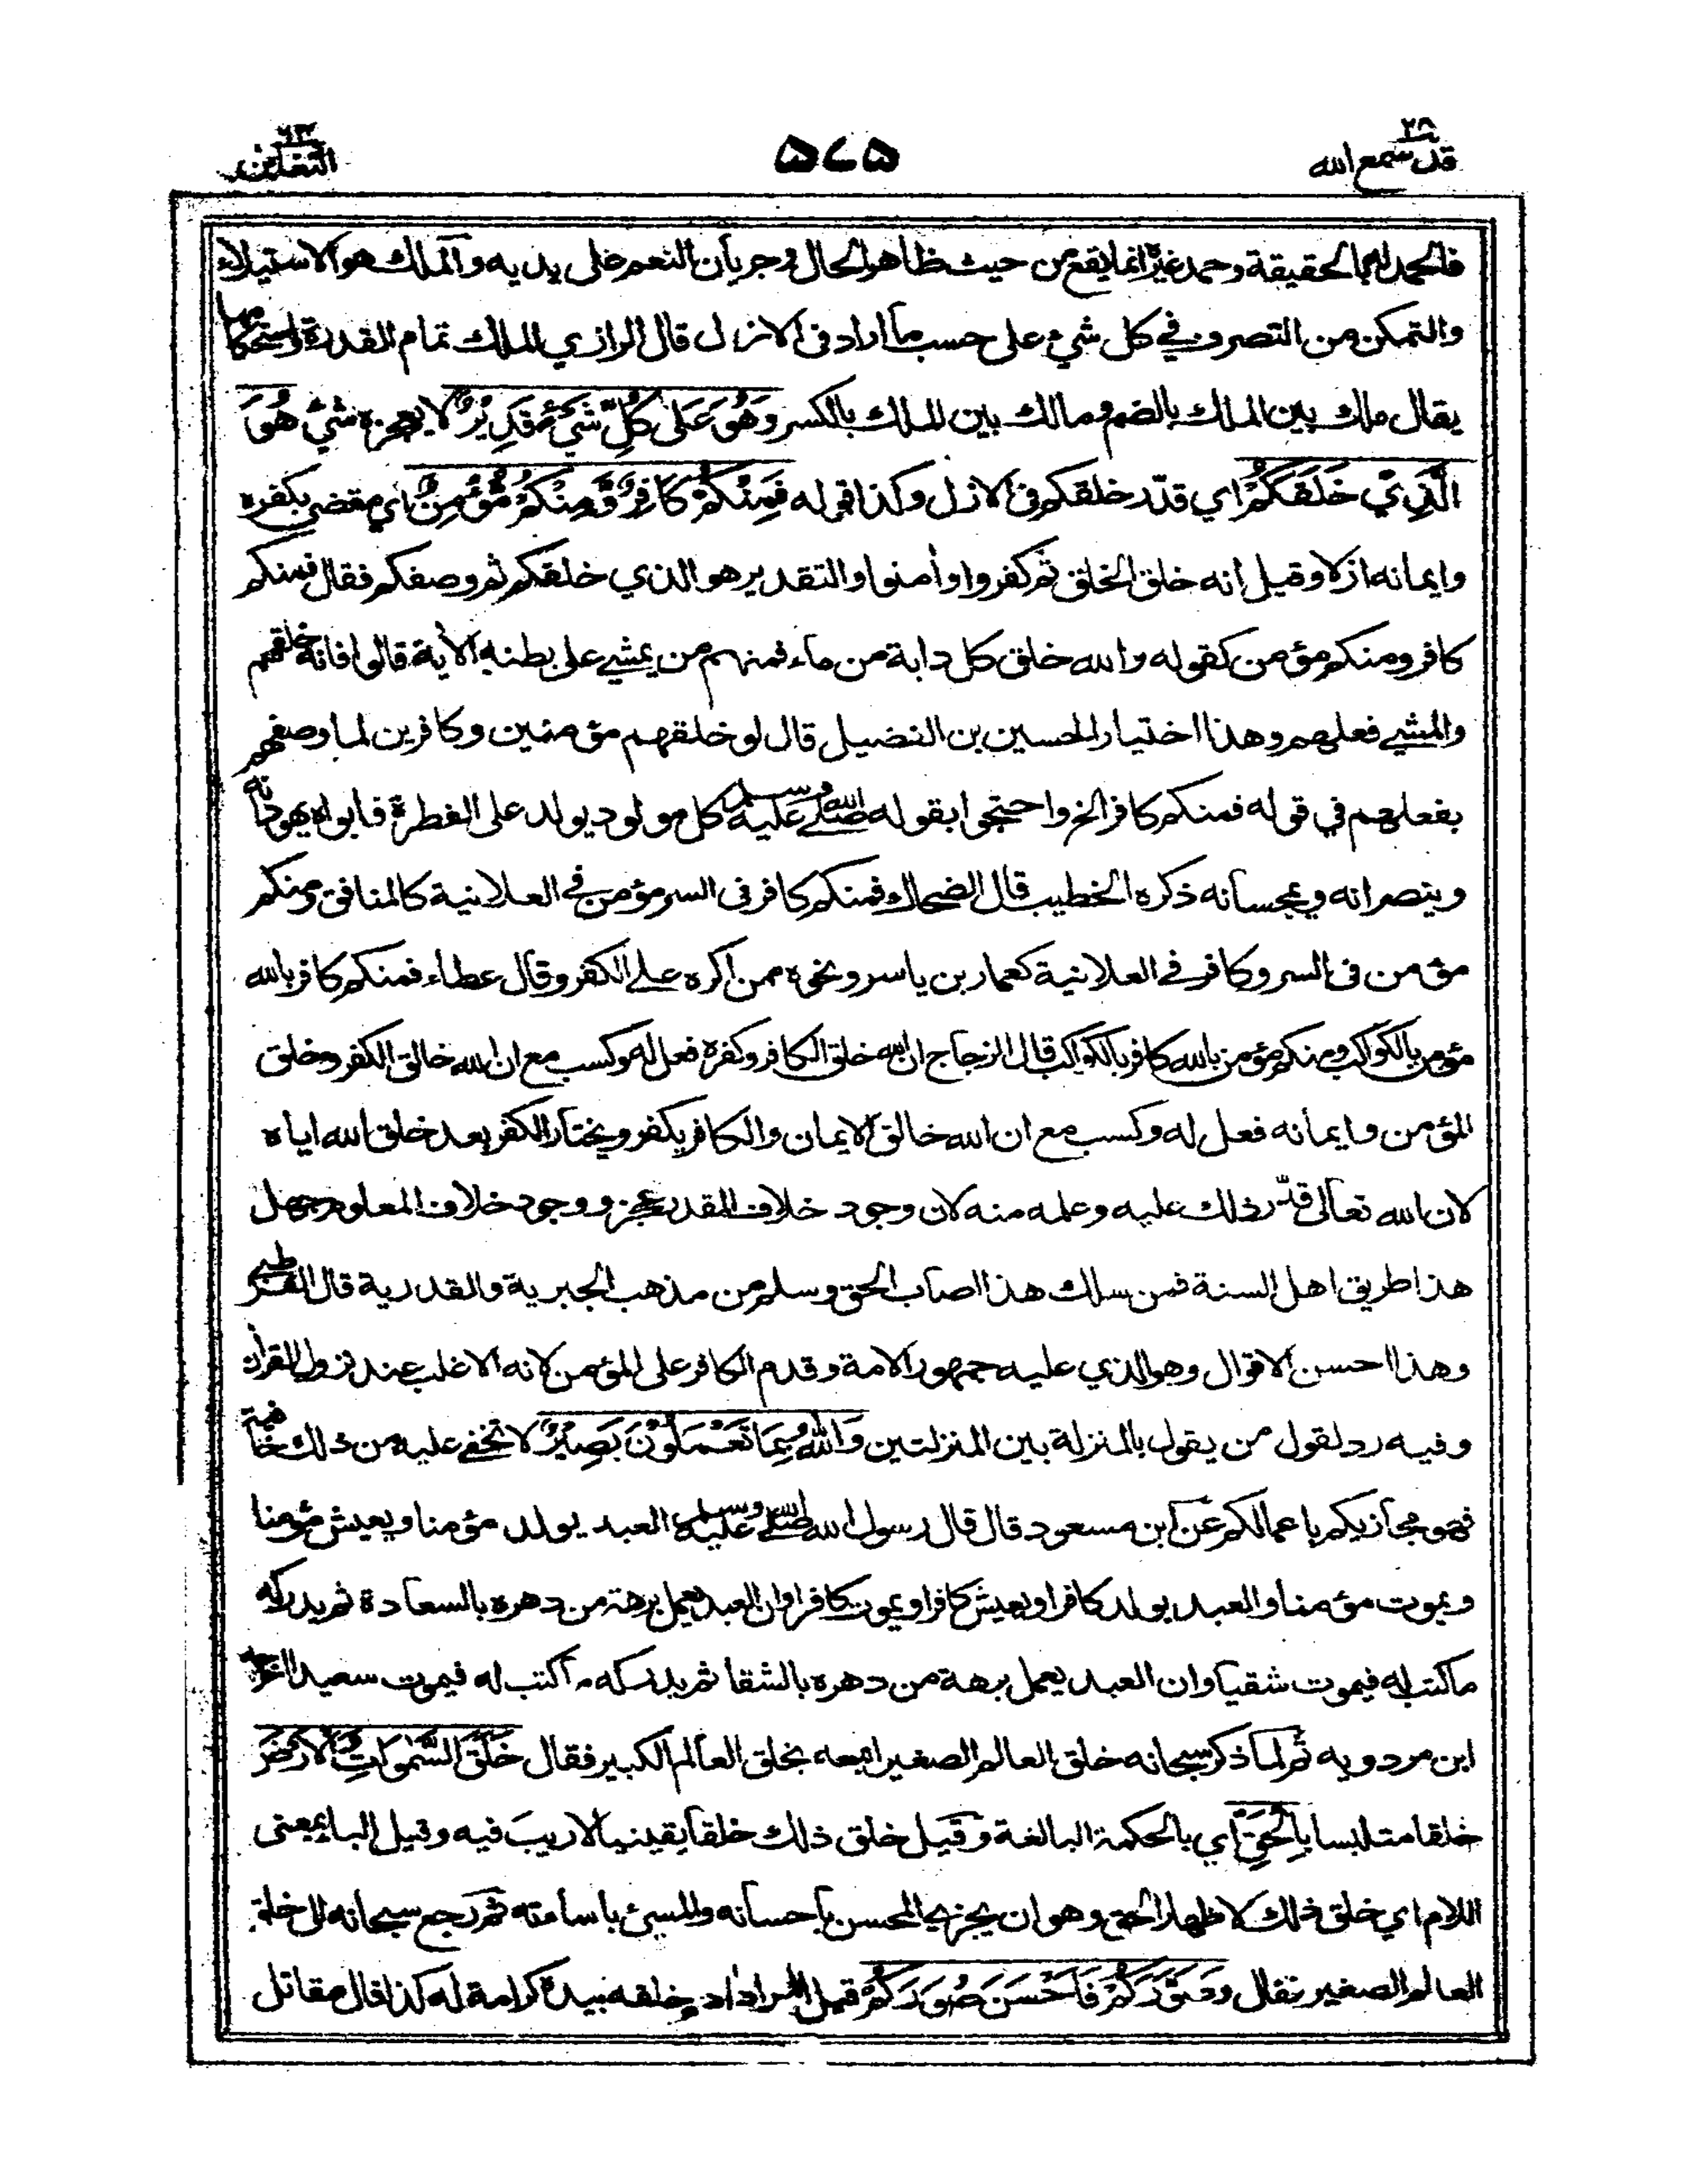 ٢٨
قد سمع الله
٥٧٥
٦٣
التغابن
فالحمد له بالحقيقة وحمد غيره انما يقع من حيث ظاهر الحال وجريان النعم على يديه والملك هو الاستيلاء
والتمكن من التصرف في كل شيء على حسب ما اراد فى الازل قال الرازي الملك تمام القدرة واستحكامها
يقال ملك بين الملك بالضم ومالك بين الملك بالكسر وَهُوَ عَلٰى كُلِّ شَيْءٍ قَدِيْرٌ لا يعجزه شيء هُوَ
الَّذِيْ خَلَقَكُمْ اي قدّر خلقكم فى الازل وكذا قوله فَمِنْكُمْ كَافِرٌ وَّمِنْكُمْ مُّؤْمِنٌ اي مقضي بكفره
وايمانه ازلا وقيل انه خلق الخلق ثم كفروا واٰمنوا والتقدير هو الذي خلقكم ثم وصفكم فقال فمنكم
كافر ومنكم مؤمن كقوله والله خلق كل دابة من ماء فمنهم من يمشي على بطنه الاٰية قالوا فانه خلقهم
والمشي فعلهم وهذا اختيار الحسين بن الفضيل قال لو خلقهم مؤمنين وكافرين لما وصفهم
بفعلهم في قوله فمنكم كافر الخ واحتجوا بقوله صلى الله عليه وسلم كل مولود يولد على الفطرة فابواه يهودانه
وينصرانه ويمجسانه ذكره الخطيب قال الضحاك فمنكم كافر فى السر مؤمن في العلانية كالمنافق ومنكم
مؤمن فى السر وكافر في العلانية كعمار بن ياسر ونحوه ممن اكره على الكفر وقال عطاء فمنكم كافر بالله
مؤمن بالكواكب ومنكم مؤمن بالله كافر بالكواكب قال الزجاج ان الله خلق الكافر وكفره فعل له وكسب مع ان الله خالق الكفر وخلق
المؤمن وايمانه فعل له وكسب مع ان الله خالق الايمان والكافر يكفر ويختار الكفر بعد خلق الله اياه
لان الله تعالى قدّر ذلك عليه وعلمه منه لان وجود خلاف المقدر عجز ووجود خلاف المعلوم جهل
هذا طريق اهل السنة فمن سلك هذا اصاب الحق وسلم من مذهب الجبرية والقدرية قال القرطبي
وهذا احسن الاقوال وهو الذي عليه جمهور الامة وقدم الكافر على المؤمن لانه الاغلب عند نزول القراٰن
وفيه رد لقول من يقول بالمنزلة بين المنزلتين وَاللهُ بِمَا تَعْمَلُوْنَ بَصِيْرٌ لا تخفى عليه من ذلك خافية
فهو مجازيكم باعمالكم عن ابن مسعود قال قال رسول الله صلى الله عليه وسلم العبد يولد مؤمنا ويعيش مؤمنا
ويموت مؤمنا والعبد يولد كافرا ويعيش كافرا ويموت كافرا وان العبد يعمل برهة من دهره بالسعادة ثم يدركه
ما كتب له فيموت شقيا وان العبد يعمل برهة من دهره بالشقا ثم يدركه ما كتب له فيموت سعيدا اخرجه
ابن مردويه ثم لما ذكر سبحانه خلق العالم الصغير اتبعه بخلق العالم الكبير فقال خَلَقَ السَّمٰوَاتِ وَالْاَرْضَ
خلقا متلبسا بِالْحَقِّ اي بالحكمة البالغة وقيل خلق ذلك خلقا يقينيا لاريب فيه وقيل الباء بمعنى
اللام اي خلق ذلك لاظهار الحق وهو ان يجزي المحسن باحسانه والمسئ باساءته ثم رجع سبحانه الى خلق
العالم الصغير فقال وَصَوَّرَكُمْ فَاَحْسَنَ صُوَرَكُمْ قيل المراد اٰدم خلقه بيده كرامة له كذا قال مقاتل